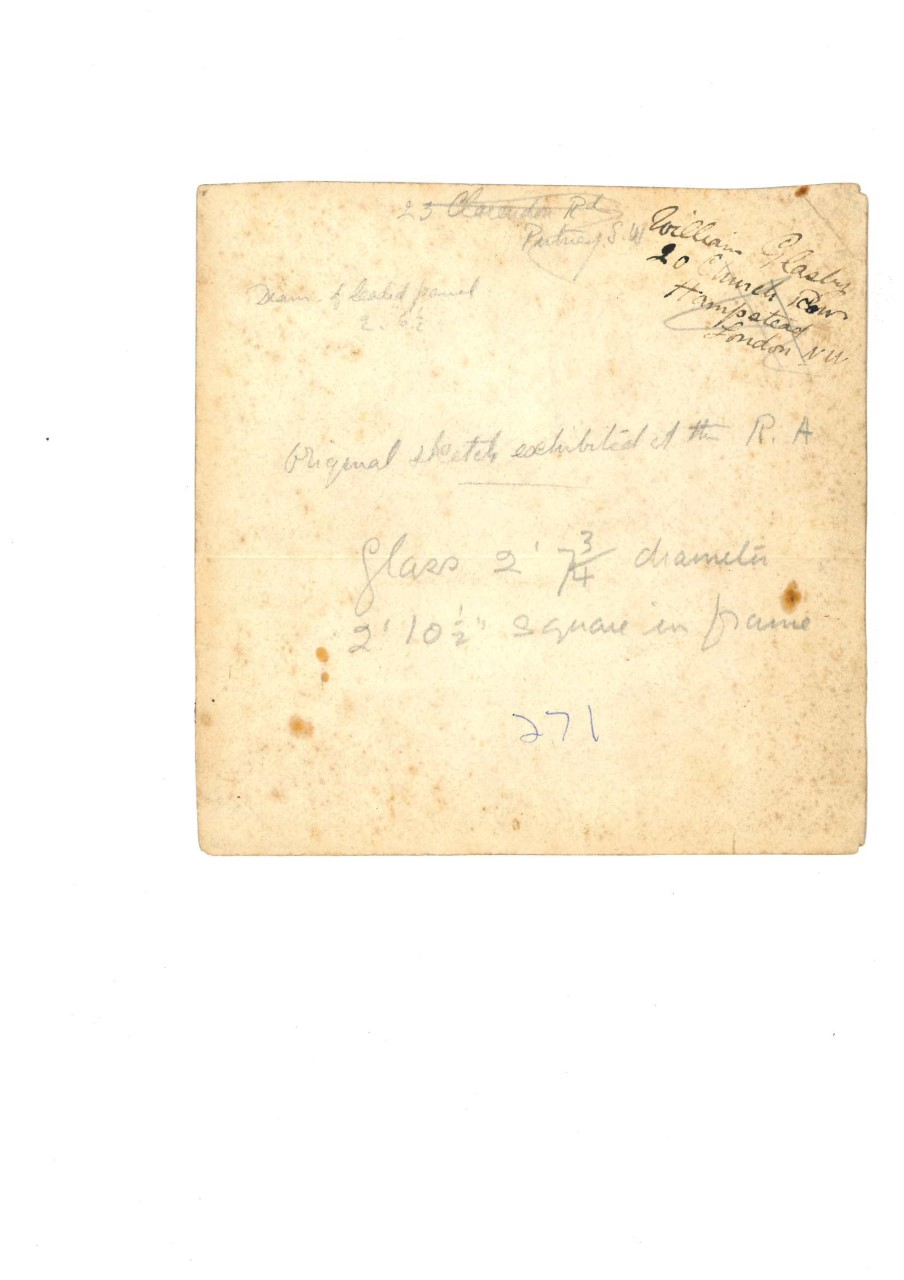 23 Clarendon Rd
Putney. S. W
William Glasby
20 Church Row
Hampstead
London NW
Diam. of leaded panel
2. 6½
Original sketch exhibited at the R. A
Glass 2' 7¾ diameter
2' 10½" square in frame
271